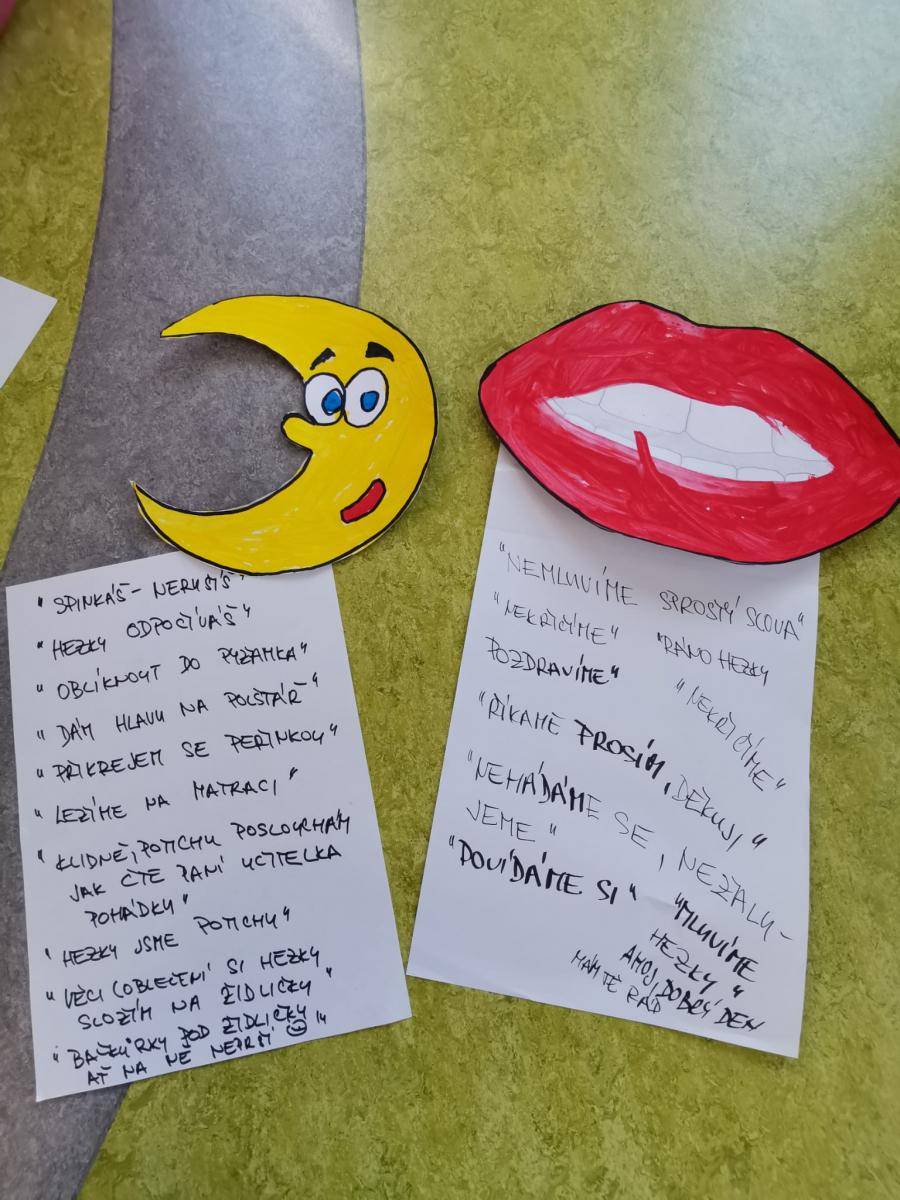 "SPINKÁŠ - NERUŠÍŠ"
"HEZKY ODPOČÍVÁŠ"
"OBLÍKNOUT DO PYŽAMKA"
"DÁM HLAVU NA POLŠTÁŘ"
"PŘIKREJEM SE PEŘINKOU"
"LEŽÍME NA MATRACI"
"KLIDNĚ, POTICHU POSLOUCHÁM
JAK ČTE PANÍ UČITELKA
POHÁDKU"
"HEZKY JSME POTICHU"
"VĚCI (OBLEČENÍ SI HEZKY
SLOŽÍM NA ŽIDLIČKY"
"BAČKŮRKY POD ŽIDLIČKY
AŤ NA NĚ NEPRŠÍ ☺"
"NEMLUVÍME SPROSTÝ SLOVA"
"NEKŘIČÍME"
"RÁNO HEZKY
POZDRAVÍME"
"NEKŘIČÍME"
"ŘÍKAME PROSÍM, DĚKUJI"
"NEHÁDÁME SE, NEŽALU-
JEME"
"POVÍDÁME SI"
"MLUVÍME
HEZKY"
AHOJ, DOBRÝ DEN
MÁM TĚ RÁD